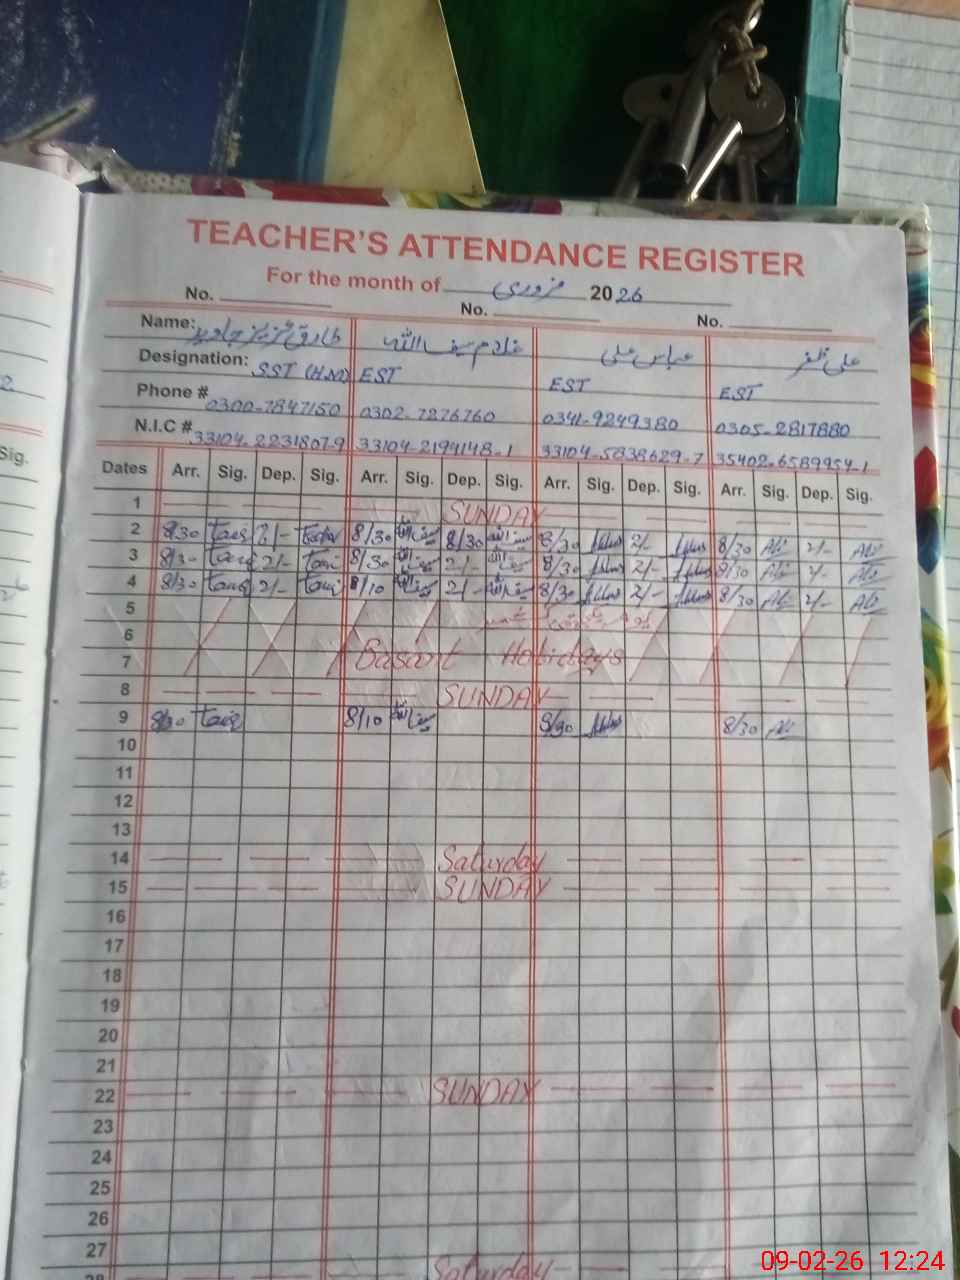 TEACHER'S ATTENDANCE REGISTER
For the month of فروری 2026
No. No. No.
Name: طارق عزیز جاوید خادم سیف اللہ عباس علی علی ظفر
Designation: SST (H.M) EST EST EST
Phone # 0300-7847150 0302-7276760 0341-9249380 0305-2817880
N.I.C # 33104-2231807-9 33104-2194148-1 33104-5838629-7 35402-6589954-1
Dates Arr. Sig. Dep. Sig. Arr. Sig. Dep. Sig. Arr. Sig. Dep. Sig. Arr. Sig. Dep. Sig.
1 SUNDAY
2 8/30 Tariq 2/- Tariq 8/30 سیف اللہ 8/30 سیف اللہ 8/30 2/- 8/30 Ali 2/- Ali
3 8/30 Tariq 2/- Tariq 8/30 سیف اللہ 2/- سیف اللہ 8/30 2/- 8/30 Ali 2/- Ali
4 8/30 Tariq 2/- Tariq 8/10 سیف اللہ 2/- سیف اللہ 8/30 2/- 8/30 Ali 2/- Ali
5
6
7 Basant Holidays
8 SUNDAY
9 8/30 Tariq 8/10 سیف اللہ 8/30 8/30 Ali
10
11
12
13
14 Saturday
15 SUNDAY
16
17
18
19
20
21
22 SUNDAY
23
24
25
26
27
28 Saturday
Sig.
09-02-26 12:24